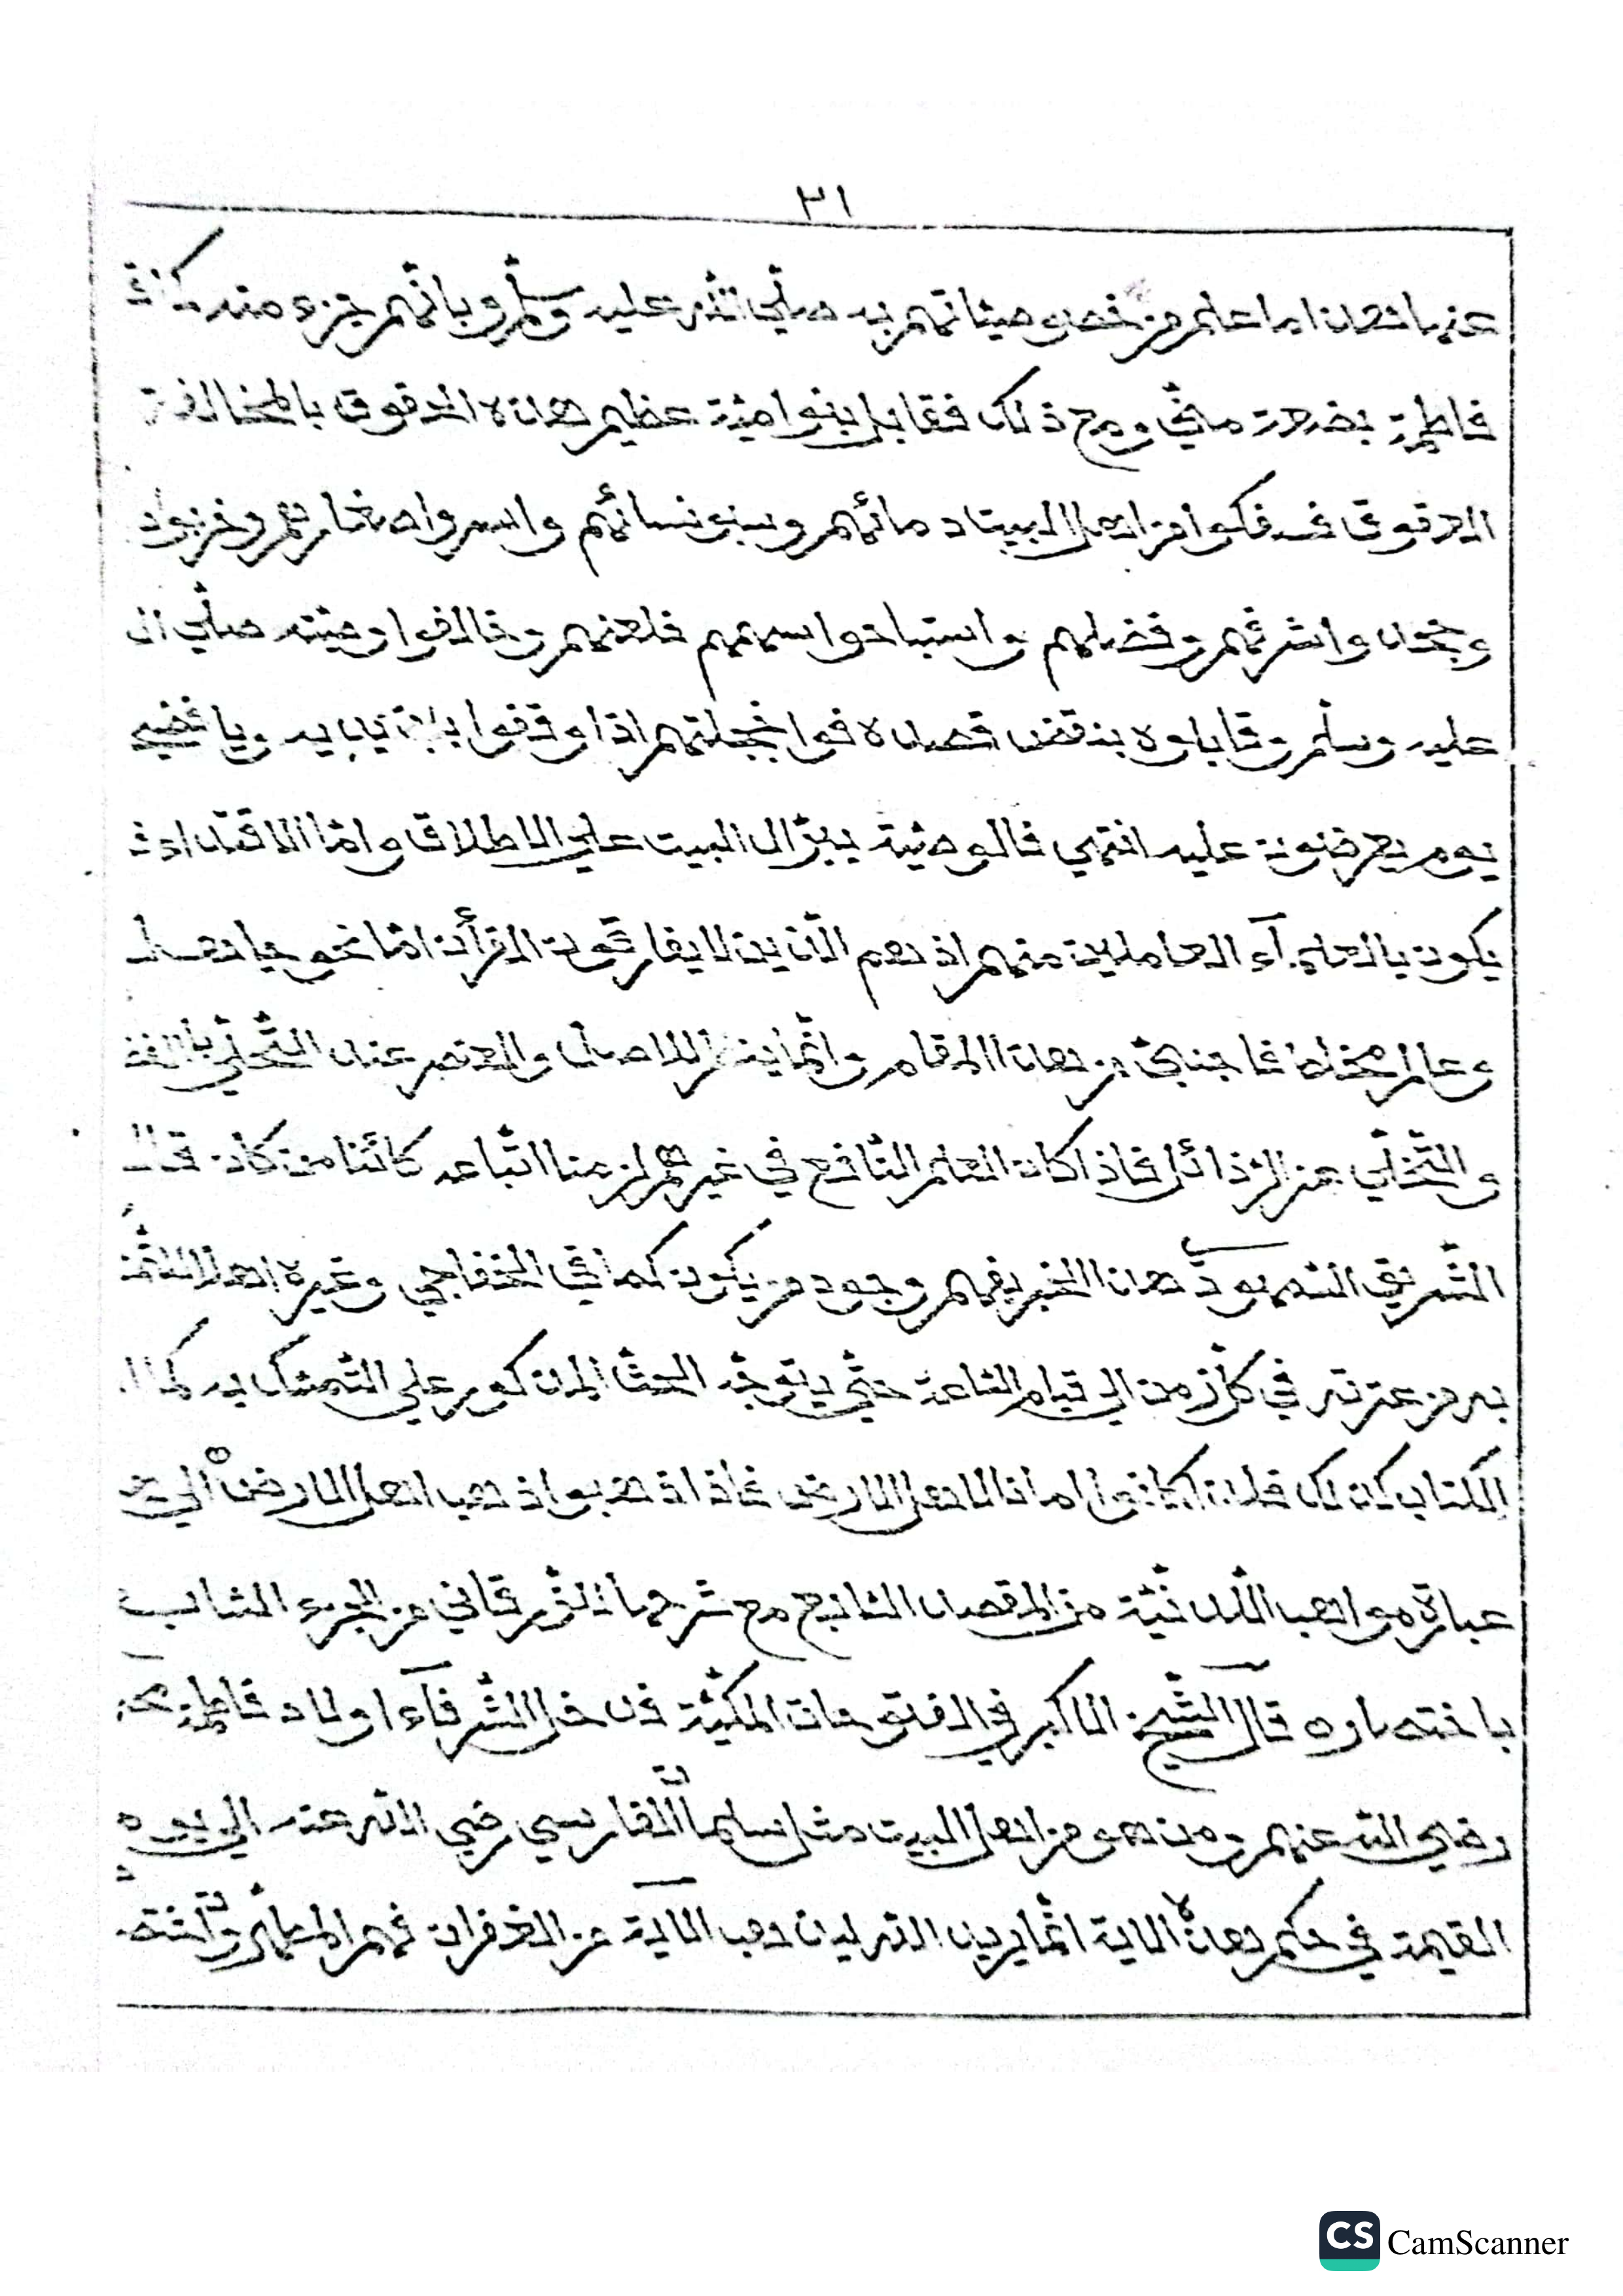 ٣١
عنها هذا ما علم من خصوصياتهم به صلي الله عليه وسلم وبانهم جزء منه كما قال
فاطمة بضعة مني ومع ذلك فقابل بنو امية عظيم هذه الحقوق بالمخالفة
العقوق فسفكوا من اهل البيت دمائهم وسبو نسائهم واسروا صغارهم وخربوا د
وجحدوا شرفهم وفضلهم واستباحوا سبهم فلعنهم وخالفوا وصيته صلي ال
عليه وسلم وقابلوه بنقض قصده فوا خجلتهم اذا وقفوا بين يديه ويا فضيح
يوم يعرضون عليه انتهي فالوصية ببر ال البيت علي الاطلاق واما الاقتداء ف
يكون بالعلمآء العاملين منهم اذ هم الذين لا يفارقون القرآن اما نحو جاهل
وعالم مخلط فاجنبي من هذا المقام وانما ينظر للاصل والعنصر عند التحلي بالفض
والتخلي عن الرذائل فاذا كان العلم النافع في غيرهم لزمنا اتباعه كائنا من كان قال
الشريف السمهودي هذا الخبر يفهم وجود من يكون كما في الخفاجي وغيره اهلا للتم
به من عترته في كل زمن الي قيام الساعة حتي يتوجه الحث المذكور علي التمسك به كما ا
الكتاب كذلك فلذا كانوا امانا لاهل الارض فاذا ذهبوا ذهب اهل الارض الي
عبارة مواهب اللدنية من المقصد السابع مع شرحها للزرقاني من الجزء الساب
باختصاره قال الشيخ الاكبر في الفتوحات المكية فدخل الشرفآء اولاد فاطمة
رضي الله عنهم ومن هو من اهل البيت مثل سلمان الفارسي رضي الله عنه الي يوم
القيمة في حكم هذه الاية انما يريد الله ليذهب الاية من الغفران فهم المطهرون
CS CamScanner